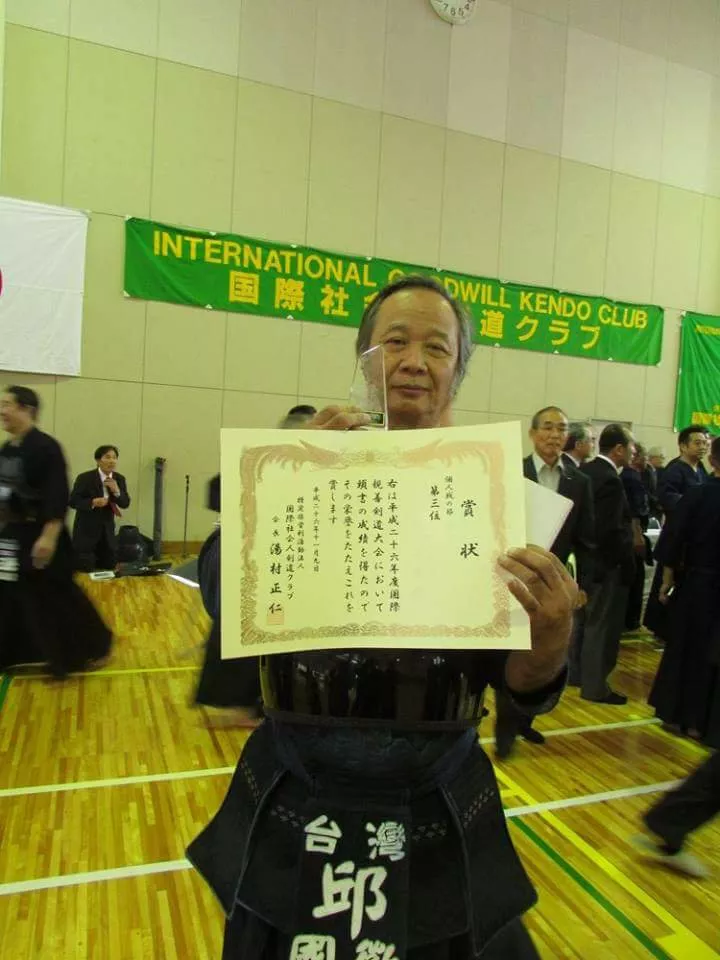 INTERNATIONAL G DWILL KENDO CLUB
国際社会 道クラブ
賞状
個人戦の部
第三位
右は平成二十六年度国際
親善剣道大会において
頭書の成績を得たので
その栄誉をたたえこれを
賞します
平成二十六年十一月九日
特定非営利活動法人
国際社会人剣道クラブ
会長 湯村正仁
台灣
邱
國
7 6 5 4